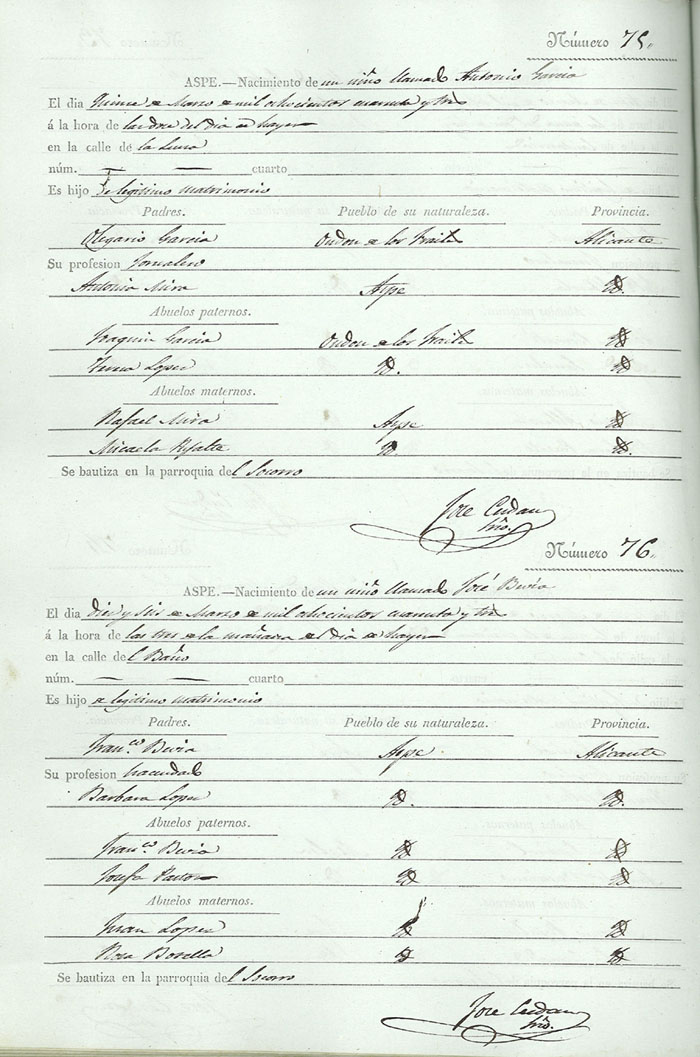 Número 75.
ASPE.—Nacimiento de un niño llamado Antonio Garcia
El dia Quince de Marzo de mil ochocientos cuarenta y tres
á la hora de las dose del dia de hayer
en la calle de la Luna
núm. — — cuarto
Es hijo de legitimo matrimonio
Padres. Pueblo de su naturaleza. Provincia.
Olegario Garcia Ondon de los Fraile Alicante
Su profesion Jornalero
Antonia Mira Aspe Yd.
Abuelos paternos.
Joaquin Garcia Ondon de los Fraile Yd
Teresa Lopez Yd. Yd
Abuelos maternos.
Rafael Mira Aspe Yd
Micaela Yd Yd.
Se bautiza en la parroquia del Socorro
Jose
Srio.
Número 76.
ASPE.—Nacimiento de un niño llamado José Bevia
El dia diez y seis de Marzo de mil ochocientos cuarenta y tres
á la hora de las tres de la mañana del dia de hayer
en la calle del Baño
núm. — — cuarto
Es hijo de legitimo matrimonio
Padres. Pueblo de su naturaleza. Provincia.
Franco. Bevia Aspe Alicante
Su profesion hacendado
Barbara Lopez Yd. Yd.
Abuelos paternos.
Franco. Bevia Yd Yd
Josefa Pastor Yd Yd
Abuelos maternos.
Juan Lopez Yd Yd
Rosa Botella Yd Yd
Se bautiza en la parroquia del Socorro
Jose
Srio.